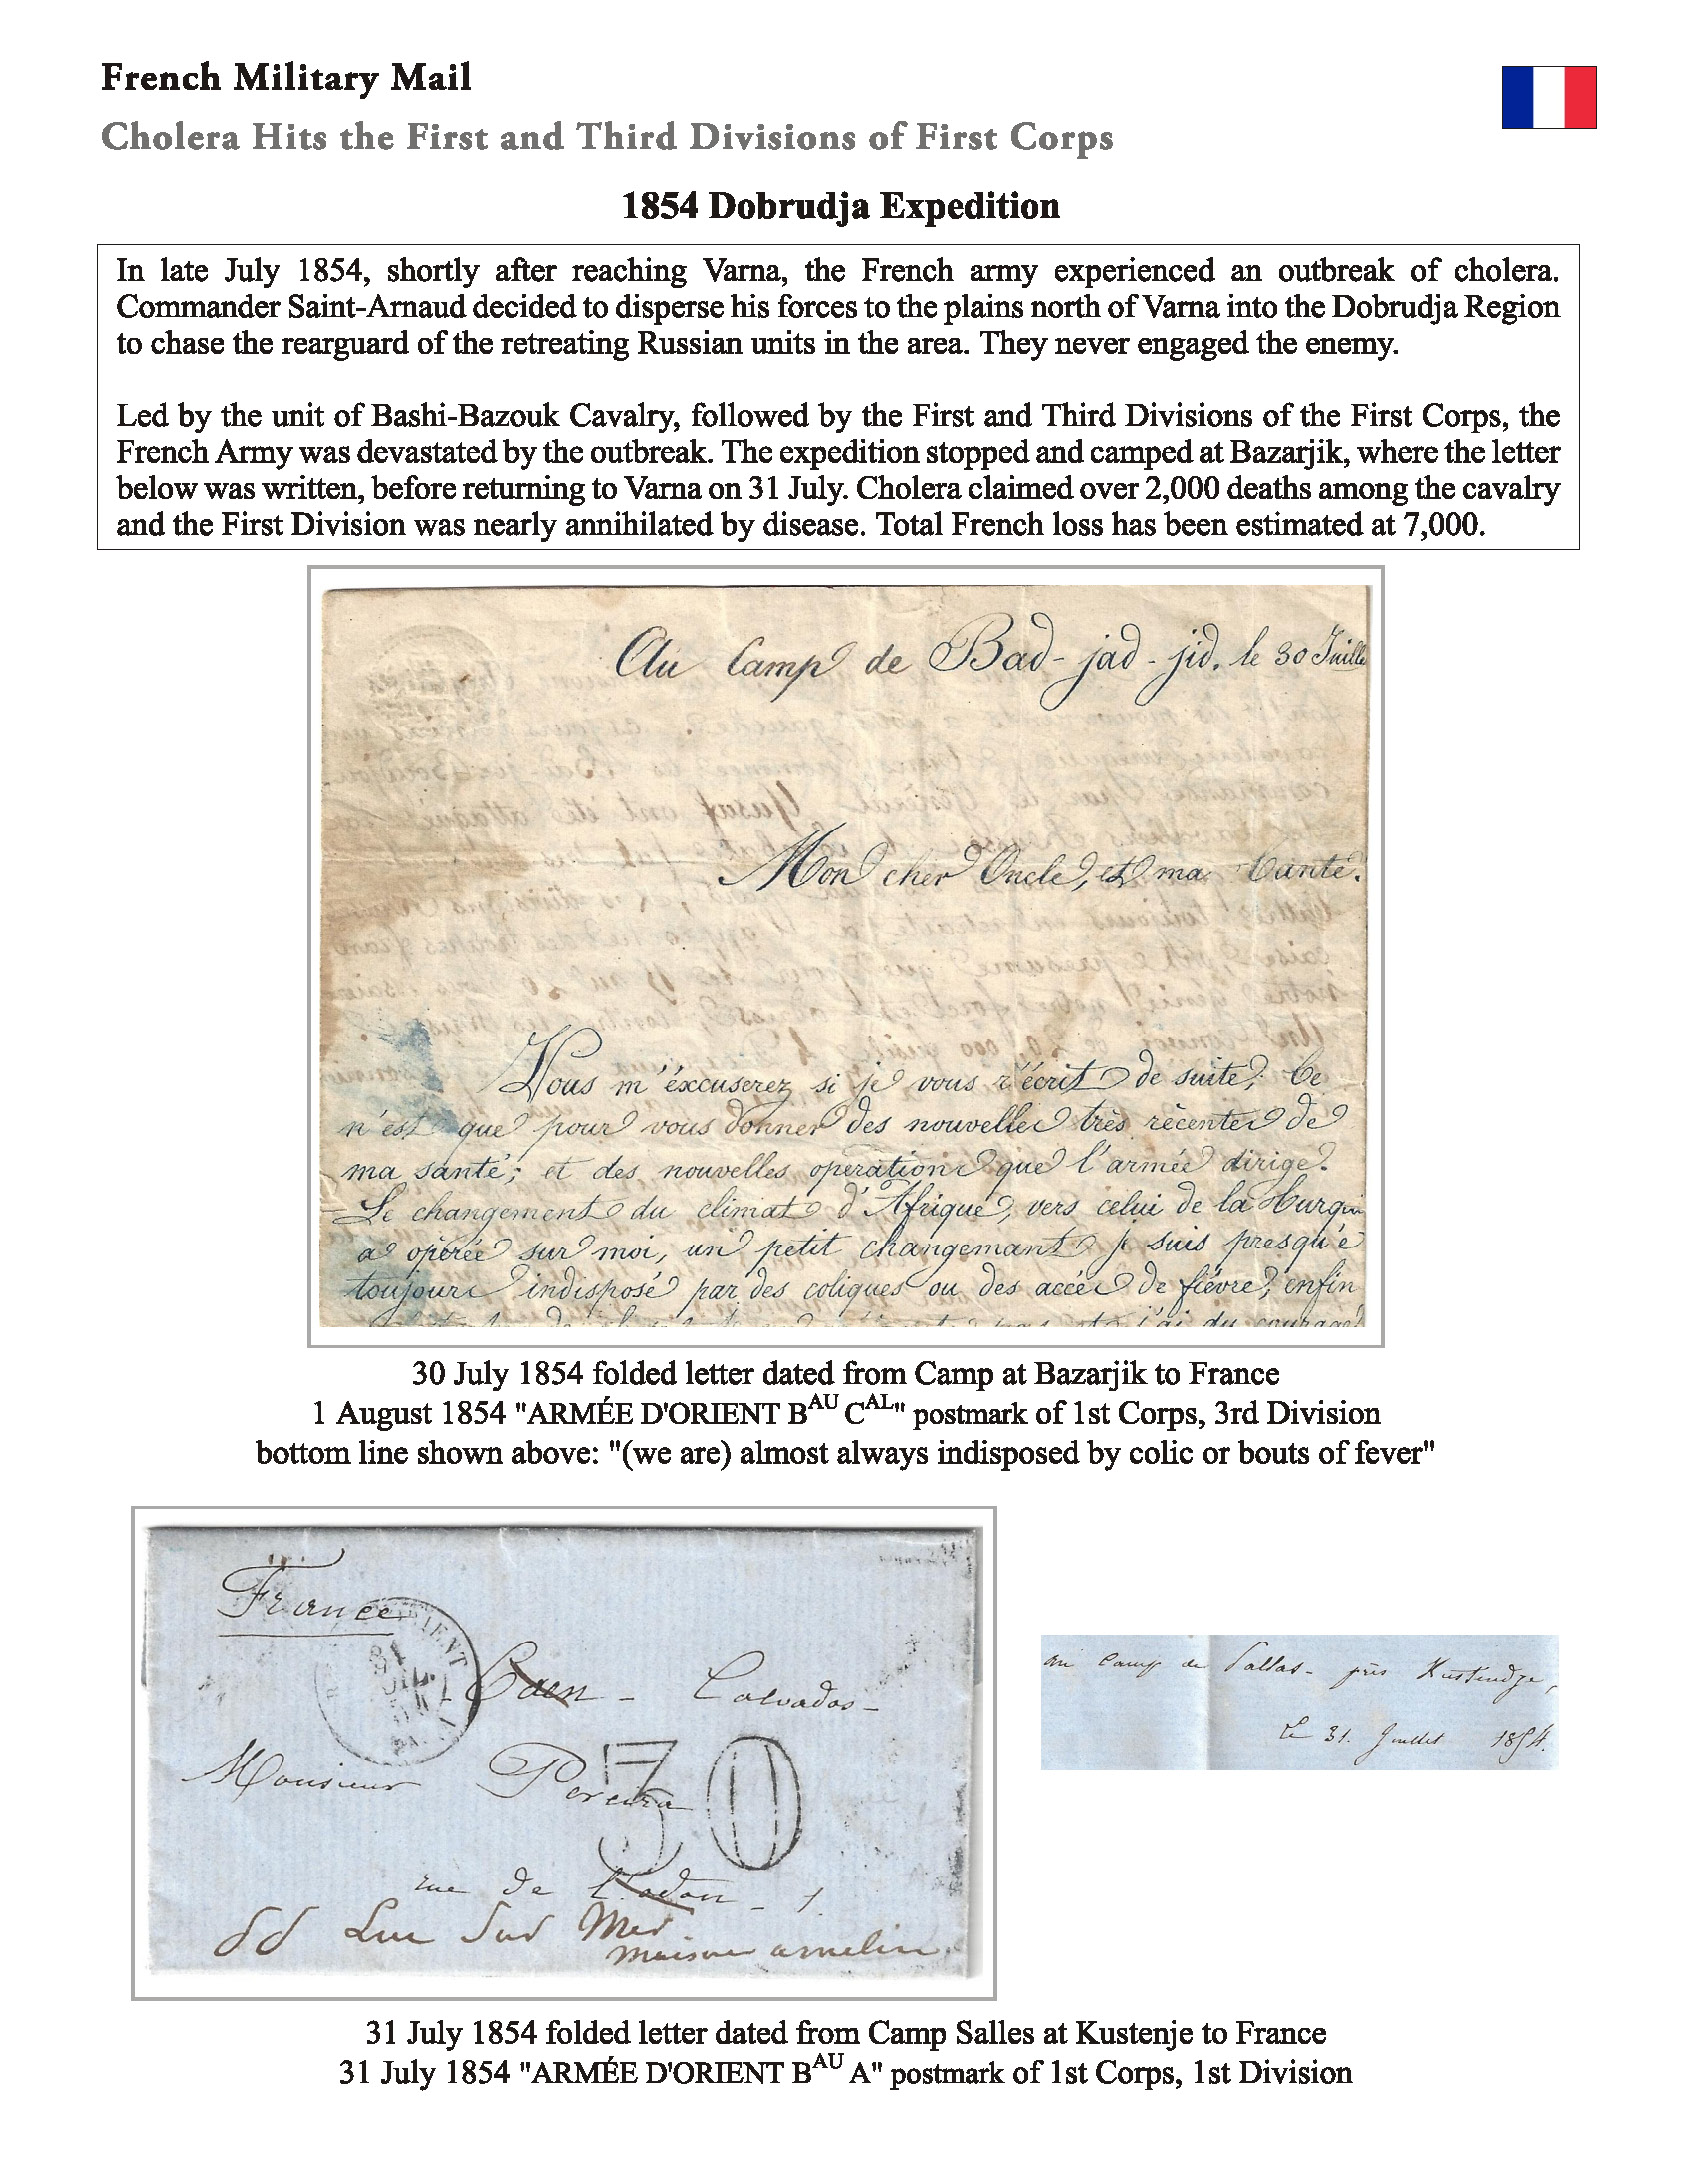 French Military Mail
Cholera Hits the First and Third Divisions of First Corps
1854 Dobrudja Expedition
In late July 1854, shortly after reaching Varna, the French army experienced an outbreak of cholera.
Commander Saint-Arnaud decided to disperse his forces to the plains north of Varna into the Dobrudja Region
to chase the rearguard of the retreating Russian units in the area. They never engaged the enemy.
Led by the unit of Bashi-Bazouk Cavalry, followed by the First and Third Divisions of the First Corps, the
French Army was devastated by the outbreak. The expedition stopped and camped at Bazarjik, where the letter
below was written, before returning to Varna on 31 July. Cholera claimed over 2,000 deaths among the cavalry
and the First Division was nearly annihilated by disease. Total French loss has been estimated at 7,000.
Au Camp de Bad-jad-jid. le 30 Juille
Mon cher Oncle, et ma tante.
Vous m'éxcuserez si je vous r'écrit de suite, Ce
n'est que pour vous donner des nouvelles très récentes de
ma santé; et des nouvelles operations que l'armée dirige.
Le changement du climat d'Afrique, vers celui de la Turqui
a opérée sur moi, un petit changemant je suis presqu'é
toujours indisposé par des coliques ou des accés de fiévre, enfin
30 July 1854 folded letter dated from Camp at Bazarjik to France
1 August 1854 "ARMÉE D'ORIENT BAU CAL" postmark of 1st Corps, 3rd Division
bottom line shown above: "(we are) almost always indisposed by colic or bouts of fever"
France
Caen - Calvados -
Monsieur Pereira
30
rue de l'odon - 1.
Luc Sur Mer
maison amelin
au Camp de Pallas - près Kustendje,
Le 31. Juillet 1854.
31 July 1854 folded letter dated from Camp Salles at Kustenje to France
31 July 1854 "ARMÉE D'ORIENT BAU A" postmark of 1st Corps, 1st Division